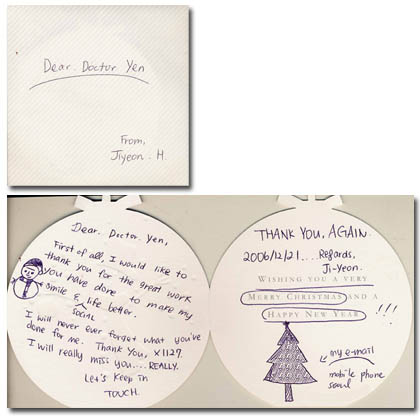 Dear. Doctor Yen
From,
Jiyeon. H.
Dear. Doctor. Yen,
First of all, I would like to
thank you for the great work
you have done to make my
smile & life better.
social
I will never ever forget what you've
done for me. Thank You, x1127
I will really miss you.... REALLY.
Let's keep in
TOUCH.
THANK YOU, AGAIN.
2006/12/21.... Regards,
Ji-Yeon.
WISHING YOU A VERY
MERRY CHRISTMAS AND A
HAPPY NEW YEAR !!!
my e-mail
mobile phone
seoul